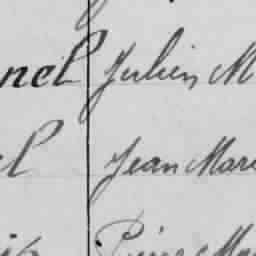 nel Julien M
l Jean Mari
Pierre Mar